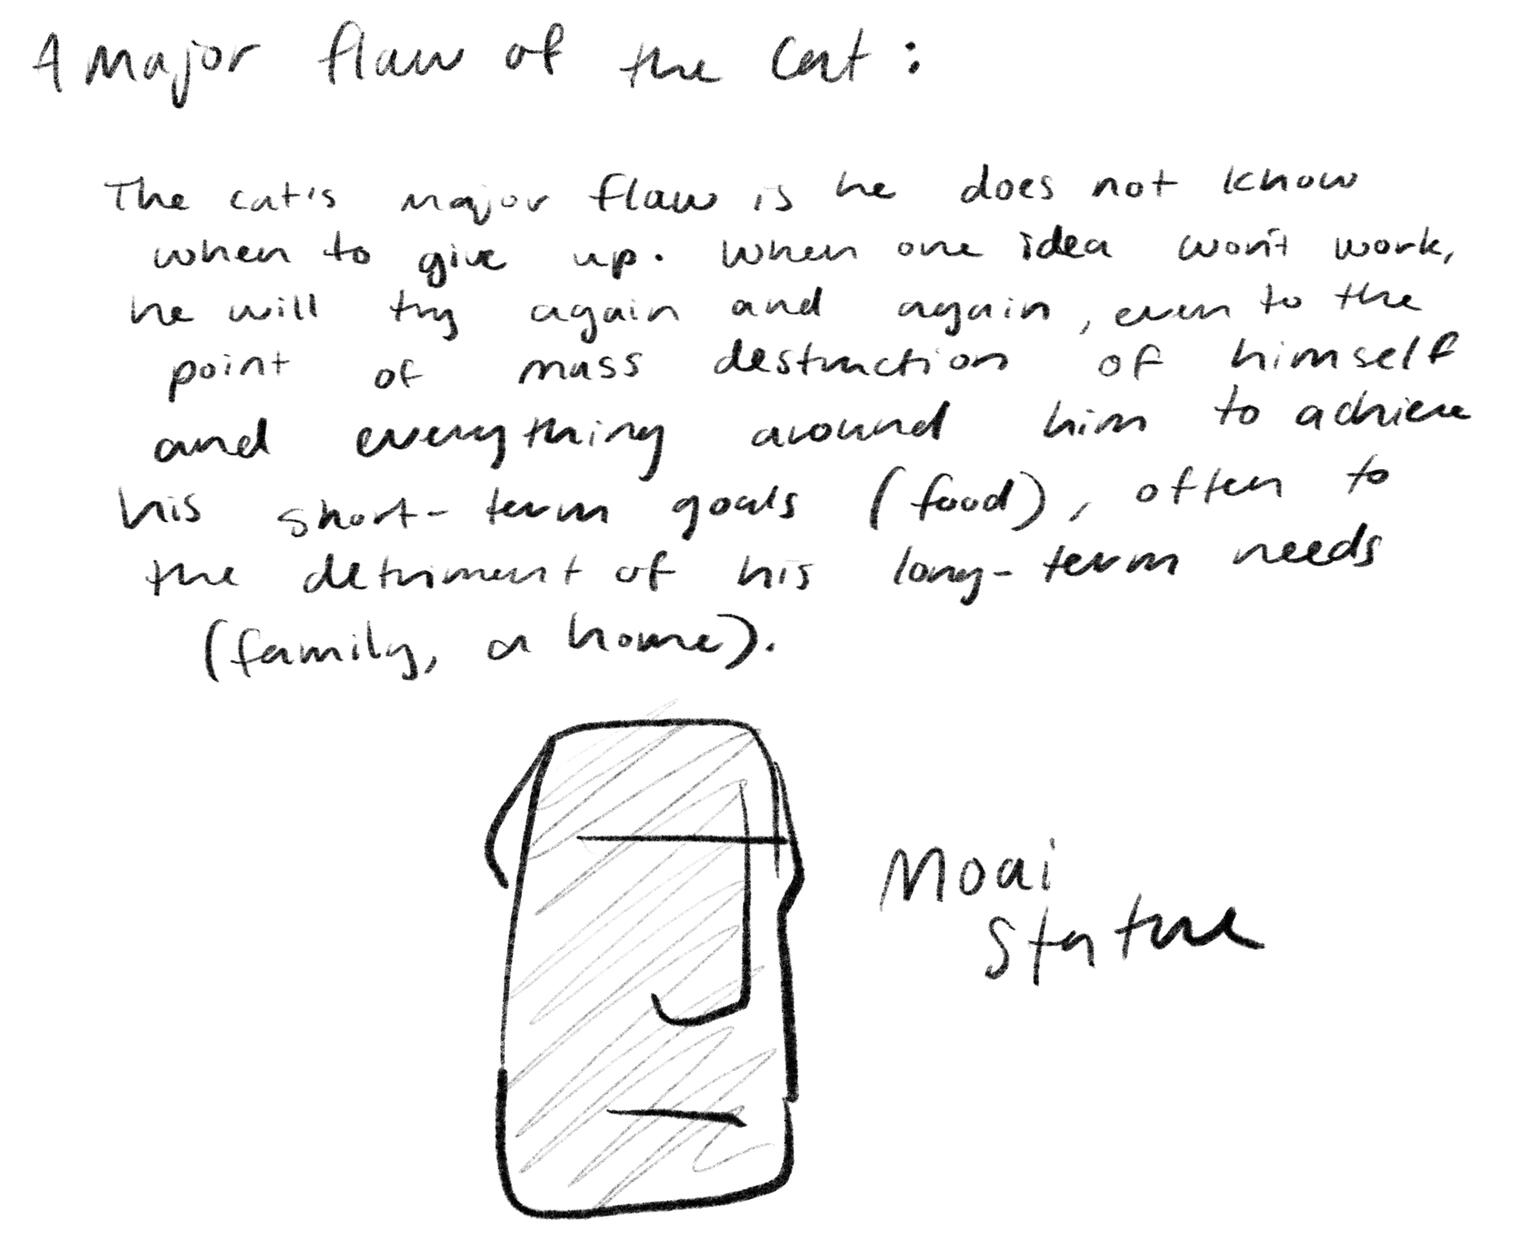 A Major flaw of the Cat:
The cat's major flaw is he does not know
when to give up. When one idea won't work,
he will try again and again, even to the
point of mass destruction of himself
and everything around him to achieve
his short-term goals (food), often to
the detriment of his long-term needs
(family, a home).
Moai
Statue